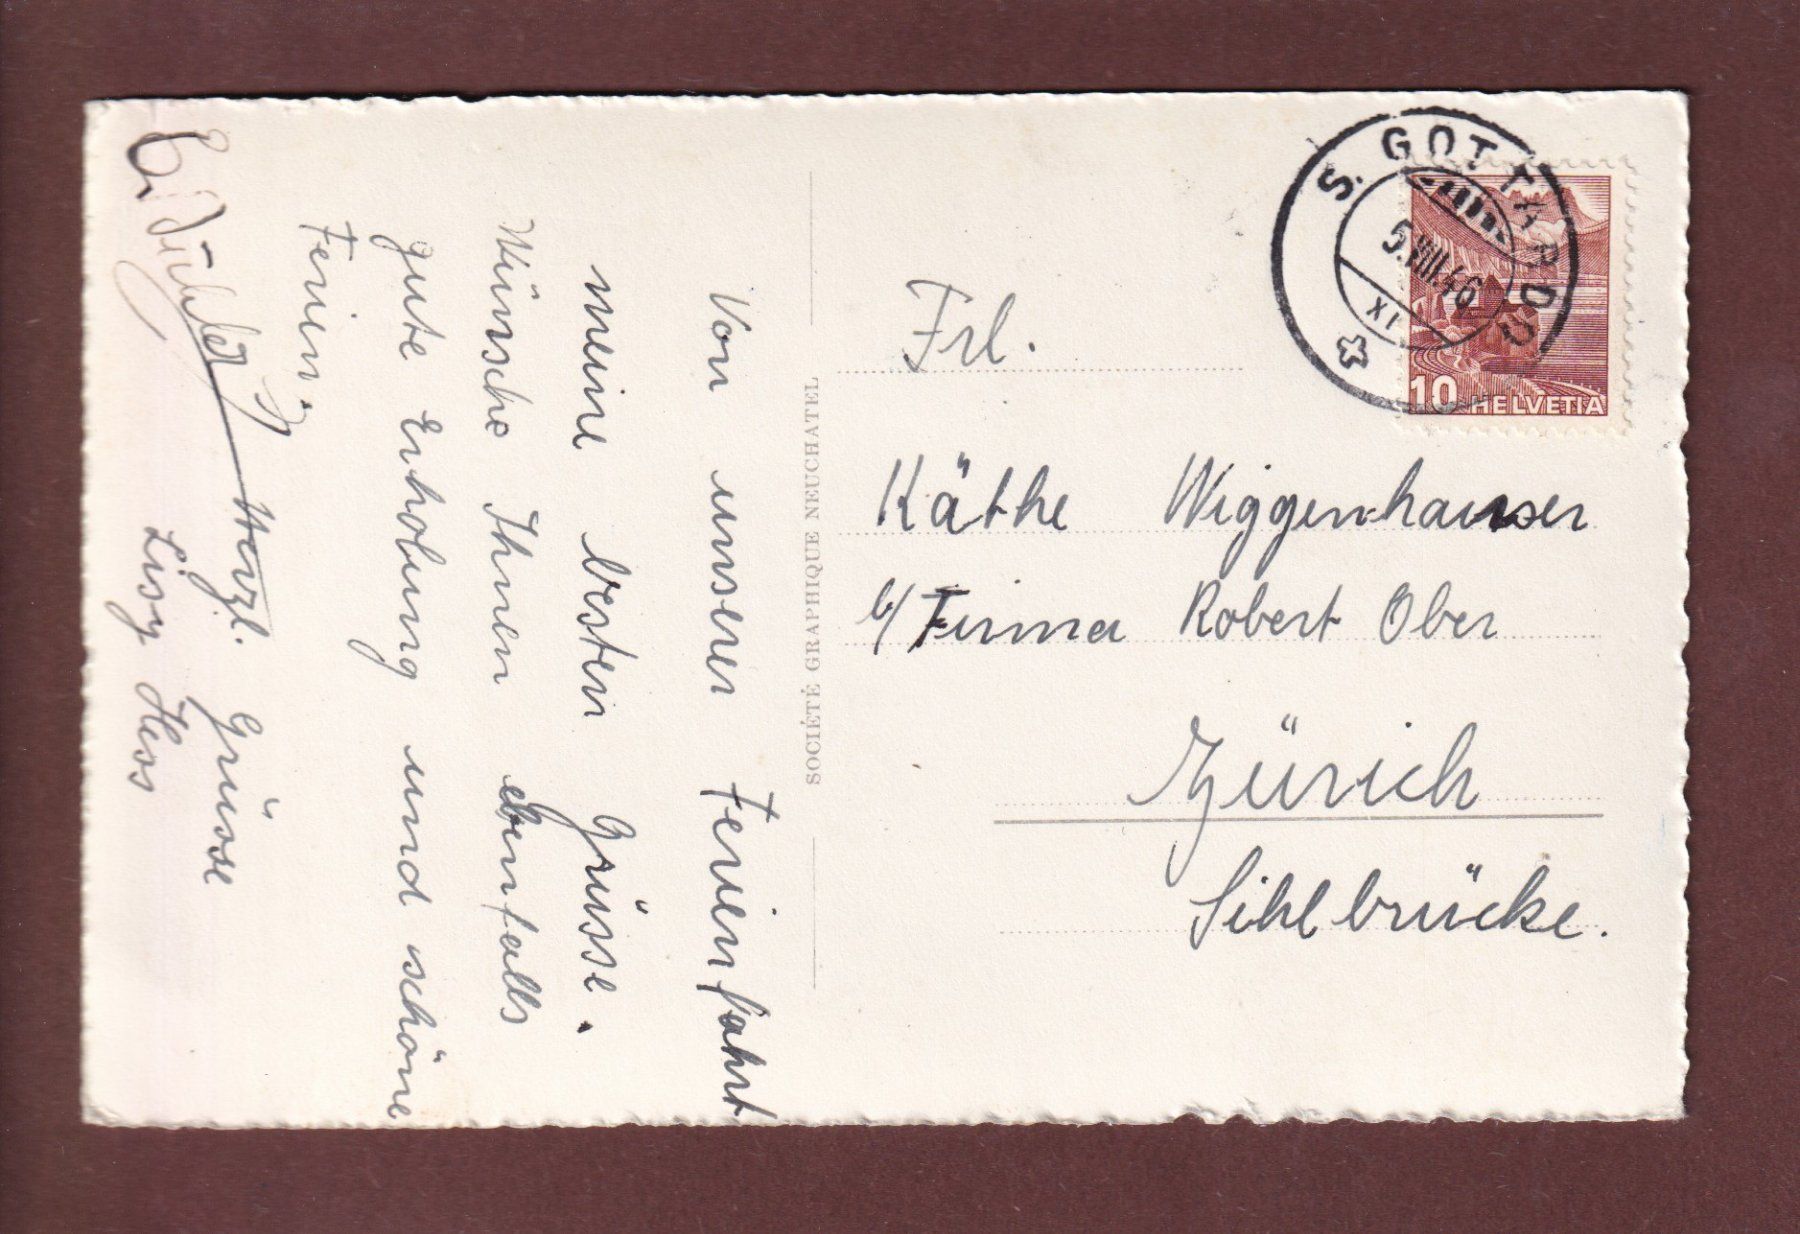 Von unserer Ferienfahrt
meine besten Grüsse.
Wünsche Ihnen ebenfalls
gute Erholung und schöne
Ferien.
Herzl. Grüsse
Lisy Hess
SOCIÉTÉ GRAPHIQUE NEUCHATEL
Frl.
Käthe Wiggenhauser
b/ Firma Robert Ober
Zürich
Sihlbrücke.
S. GOTTARDO
5.VIII.46
XI
10 HELVETIA